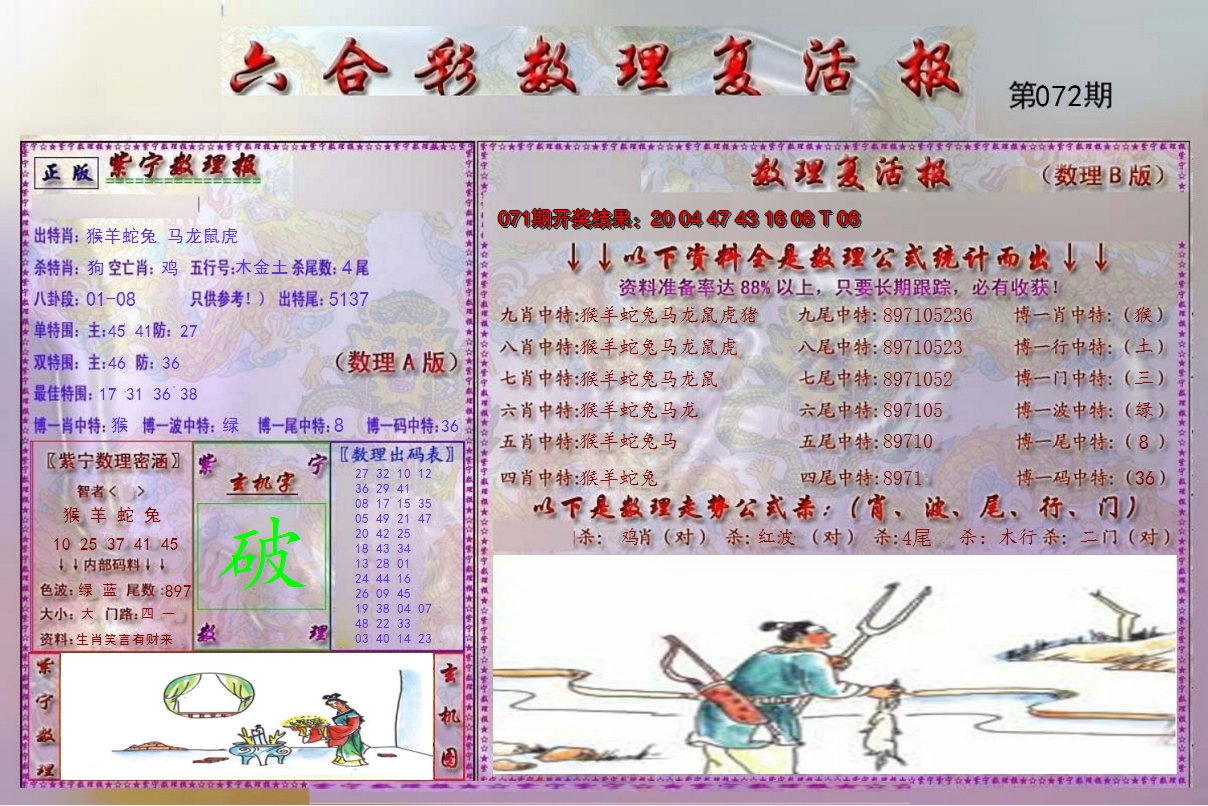 六合彩数理复活报
第072期
正版 紫宁数理报
出特肖: 猴羊蛇兔 马龙鼠虎
杀特肖: 狗 空亡肖: 鸡 五行号:木金土 杀尾数: 4 尾
八卦段: 01-08 只供参考！） 出特尾: 5137
单特围: 主:45 41防: 27
双特围: 主:46 防: 36
（数理 A 版）
最佳特围: 17 31 36 38
博一肖中特: 猴 博一波中特: 绿 博一尾中特: 8 博一码中特:36
〖紫宁数理密涵〗
智者< >
猴 羊 蛇 兔
10 25 37 41 45
↓↓内部码料↓↓
色波: 绿 蓝 尾数:897
大小: 大 门路:四 一
资料:生肖笑言有财来
紫 宁
玄机字
破
数 理
〖数理出码表〗
27 32 10 12
36 29 41
08 17 15 35
05 49 21 47
20 42 25
18 43 34
13 28 01
24 44 16
26 09 45
19 38 04 07
48 22 33
03 40 14 23
紫宁数理
玄机图
数理复活报
（数理 B 版）
071期开奖结果: 20 04 47 43 16 08 T 06
↓↓以下资料全是数理公式统计而出↓↓
资料准备率达 88% 以上，只要长期跟踪，必有收获！
九肖中特:猴羊蛇兔马龙鼠虎猪 九尾中特: 897105236 博一肖中特:（猴）
八肖中特:猴羊蛇兔马龙鼠虎 八尾中特: 89710523 博一行中特:（土）
七肖中特:猴羊蛇兔马龙鼠 七尾中特: 8971052 博一门中特:（三）
六肖中特:猴羊蛇兔马龙 六尾中特: 897105 博一波中特:（绿）
五肖中特:猴羊蛇兔马 五尾中特: 89710 博一尾中特:（8）
四肖中特:猴羊蛇兔 四尾中特: 8971 博一码中特:（36）
以下是数理走势公式杀:（肖、波、尾、行、门）
杀: 鸡肖（对） 杀: 红波（对） 杀:4尾 杀: 木行 杀: 二门（对）